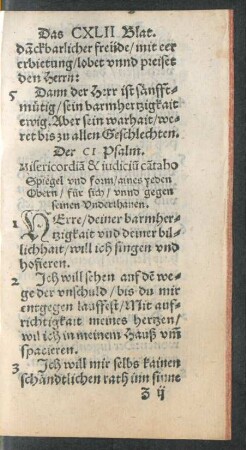 Das CXLII Blat.
dāckbarlicher freüde/mit eer
erbietung/lobet vnnd preiset
den Herrn:
5 Dann der Herr ist sänfft=
mütig/sein barmhertzigkait
ewig. Aber sein warhait/we=
ret bis zu allen Geschlechten.
Der CI Psalm.
Misericordiā & iudiciū cātabo
Spiegel vnd form/aines yeden
Obern / für sich / vnnd gegen
seinen Vnderthanen.
1 HErre/deiner barmher=
tzigkait vnd deiner bil=
lichhait/will ich singen vnd
hofieren.
2 Ich will sehen auf dē we=
ge der vnschuld/bis du mir
entgegen lauffest/Mit auf=
richtigkait meines hertzen/
wil ich in meinem Hauß vm̄
spacieren.
3 Ich will mir selbs kainen
schändtlichen rath inn sinne
Z ij